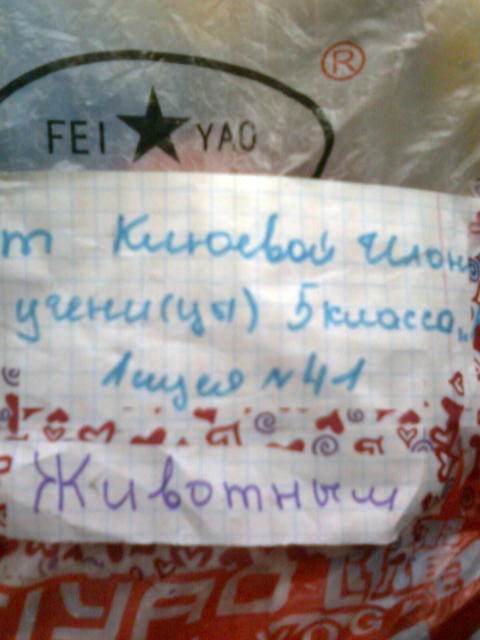 ®
FEI ★ YAO
от Клюевой Илоны
учени(цы) 5 класса„
Лицея №41
Животным